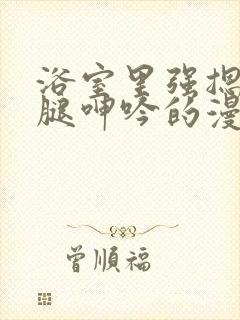 浴室里强揌
腿呻吟的漫
曾順福